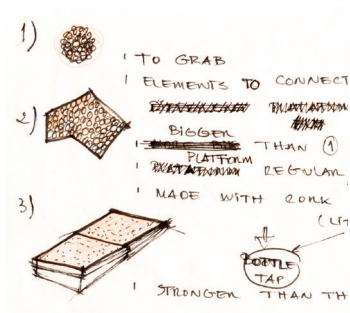 1)
' TO GRAB
' ELEMENTS TO CONNECT
2)
BIGGER
' THAN ①
PLATFORM
' REGULAR
' MADE WITH CORK
3)
(LIT
BOTTLE
TAP
' STRONGER THAN TH